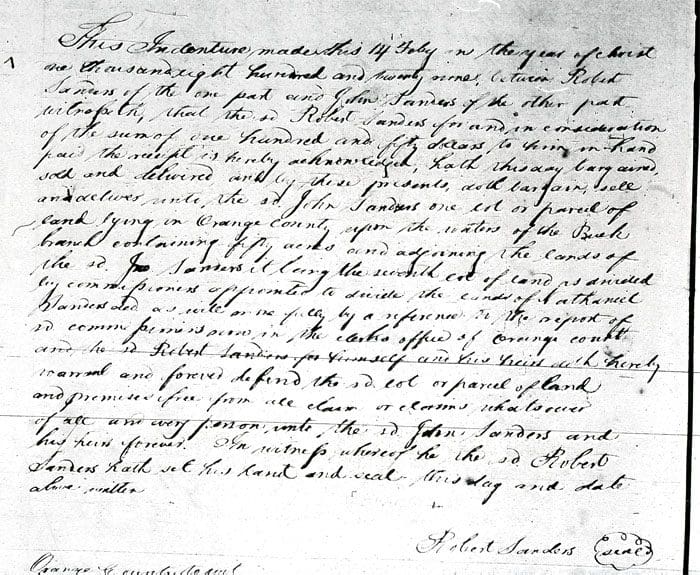 This Indenture made this 14 Feby in the year of christ
one thousand eight hundred and twenty nine, between Robert
Sanders of the one part and John Sanders of the other part
witnesseth, that the sd Robert Sanders for and in consideration
of the sum of one hundred and fifty dollars to him in hand
paid the receipt is hereby acknowledged, hath this day bargained,
sold and delivered and by these presents, doth bargain, sell
and deliver unto the sd John Sanders one lot or parcel of
land lying in Orange County upon the waters of the Bush
branch containing fifty acres and adjoining the lands of
the sd. Jno Sanders it being the seventh lot of land as divided
by commissioners appointed to divide the lands of Nathaniel
Sanders decd as will more fully by a reference to the report of
sd commissioners in the clerks office of Orange county
and he sd Robert Sanders for himself and his heirs doth hereby
warrant and forever defend the sd. lot or parcel of land
and premises free from all claim or claims whatsoever
of all and every person, unto the sd John Sanders and
his heirs forever. In witness whereof he the sd Robert
Sanders hath set his hand and seal this day and date
above written
Robert Sanders seal
Orange County to wit